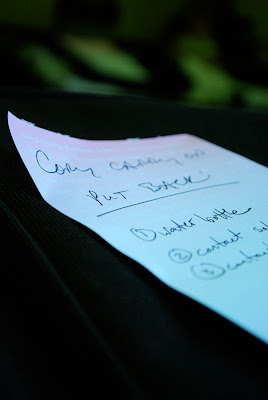 Cory CARRY ON
PUT BACK:
① water bottle
② contact sol
③ contac